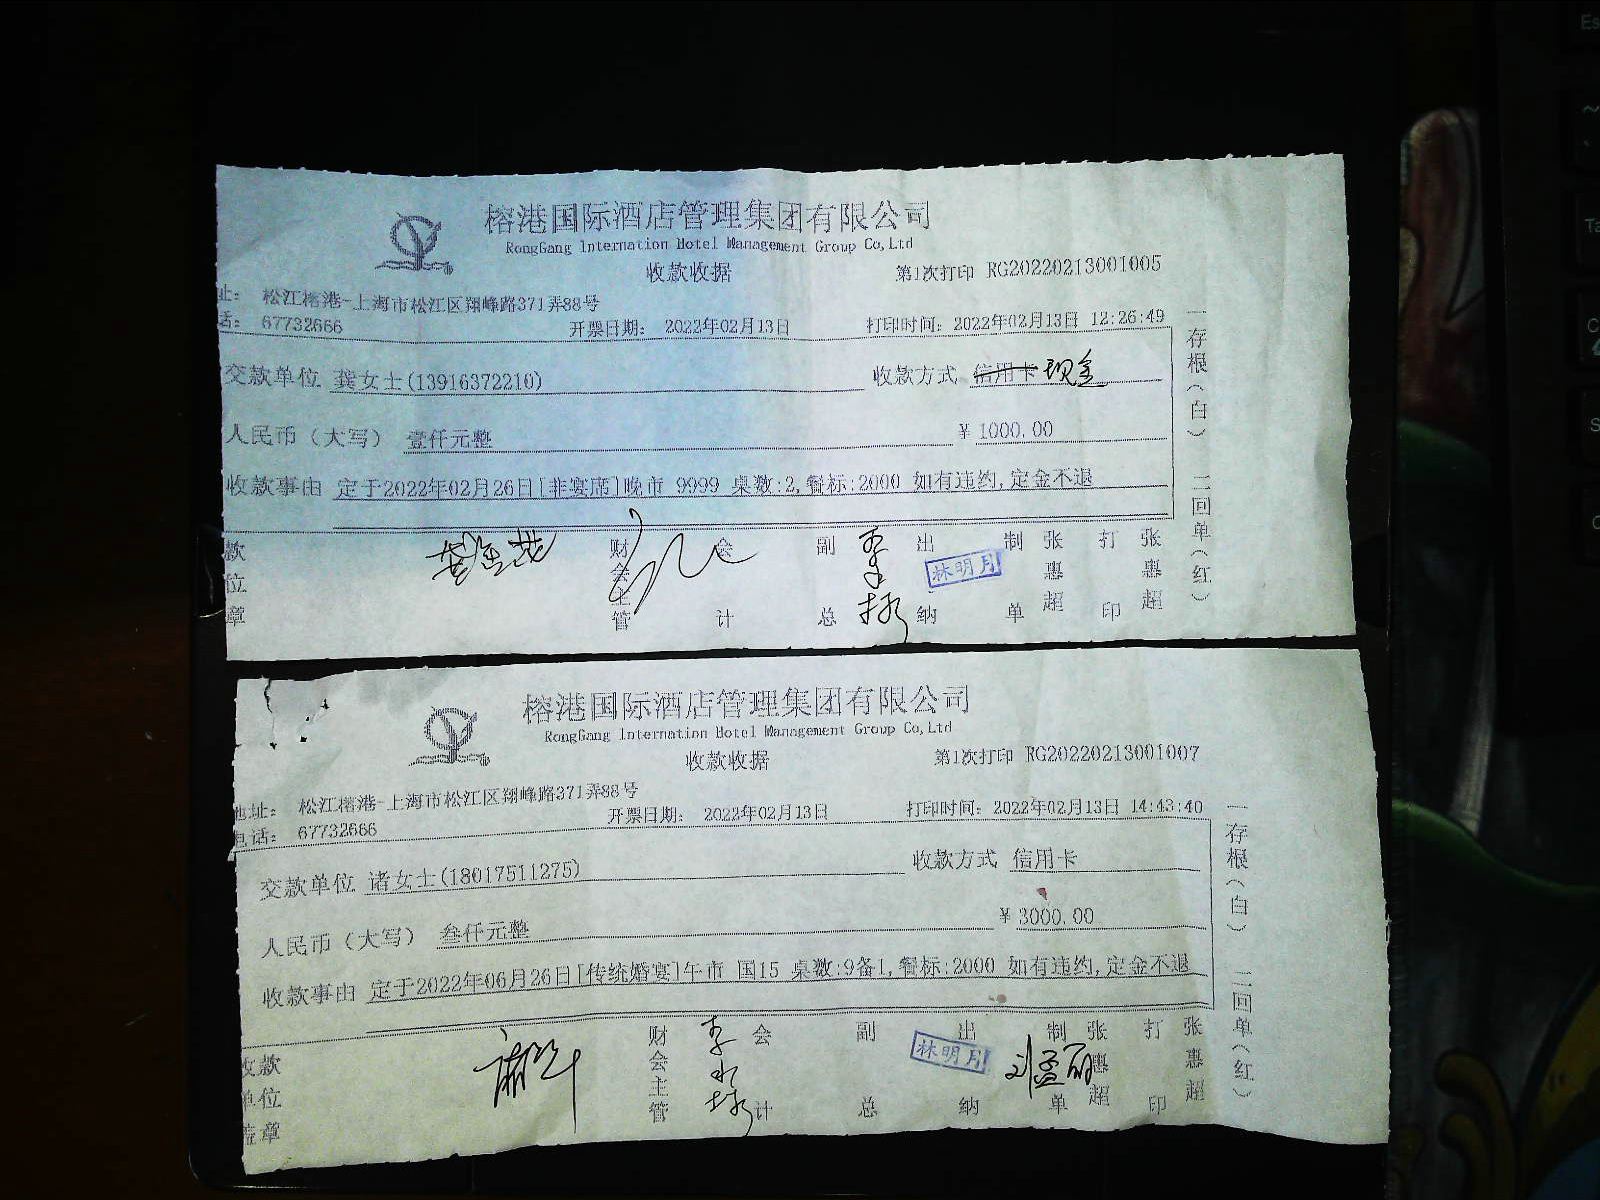 榕港国际酒店管理集团有限公司
RongGang Internation Hotel Management Group Co,Ltd
收款收据 第1次打印 RG20220213001005
址： 松江榕港-上海市松江区翔峰路371弄88号
话： 67732666 开票日期： 2022年02月13日 打印时间：2022年02月13日 12:26:49
交款单位 龚女士(13916372210) 收款方式 信用卡 现金
人民币（大写） 壹仟元整 ¥ 1000.00
收款事由 定于2022年02月26日[非宴席]晚市 9999 桌数:2,餐标:2000 如有违约,定金不退
款位章 财会主管 会计 副总 出纳 林明月 制单 张惠超 打印 张惠超
一存根（白） 二回单（红）
榕港国际酒店管理集团有限公司
RongGang Internation Hotel Management Group Co,Ltd
收款收据 第1次打印 RG20220213001007
地址： 松江榕港-上海市松江区翔峰路371弄88号
电话： 67732666 开票日期： 2022年02月13日 打印时间：2022年02月13日 14:43:40
交款单位 诸女士(18017511275) 收款方式 信用卡
人民币（大写） 叁仟元整 ¥ 3000.00
收款事由 定于2022年06月26日[传统婚宴]午市 国15 桌数:9备1,餐标:2000 如有违约,定金不退
收款单位盖章 财会主管 会计 副总 出纳 林明月 制单 张惠超 打印 张惠超
一存根（白） 二回单（红）